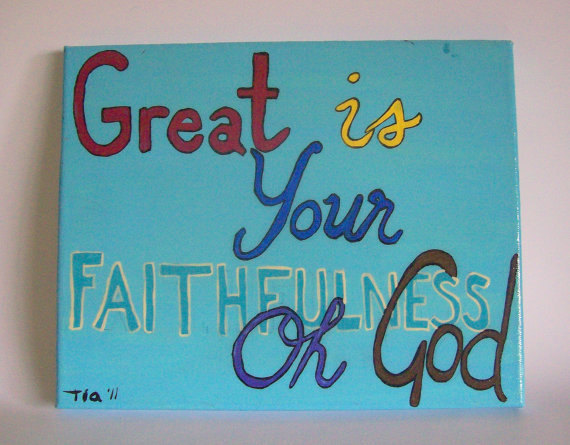 Great is
Your
FAITHFULNESS
Oh God
Tia '11